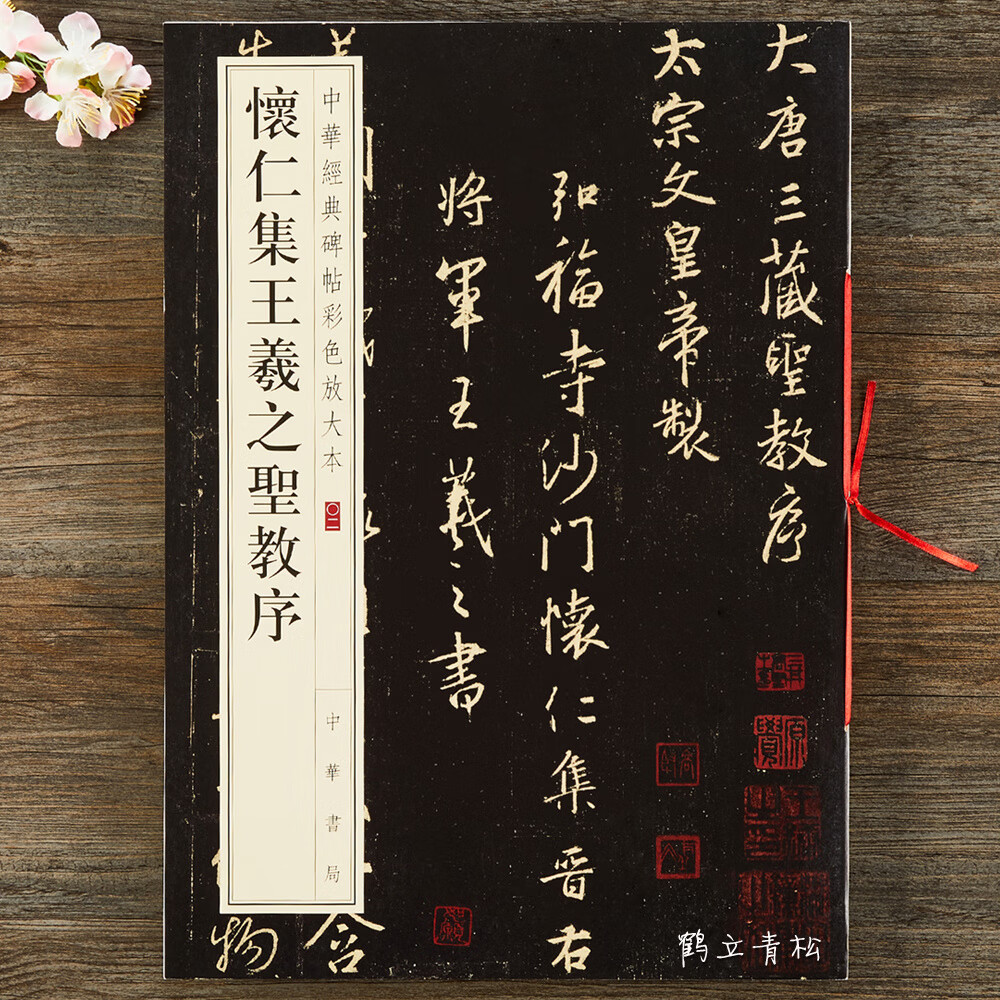 大唐三藏聖教序
太宗文皇帝製
弘福寺沙門懷仁集晋右
將軍王羲之書
含
物
中華經典碑帖彩色放大本
〇二
中華書局
懷仁集王羲之聖教序
鹤立青松